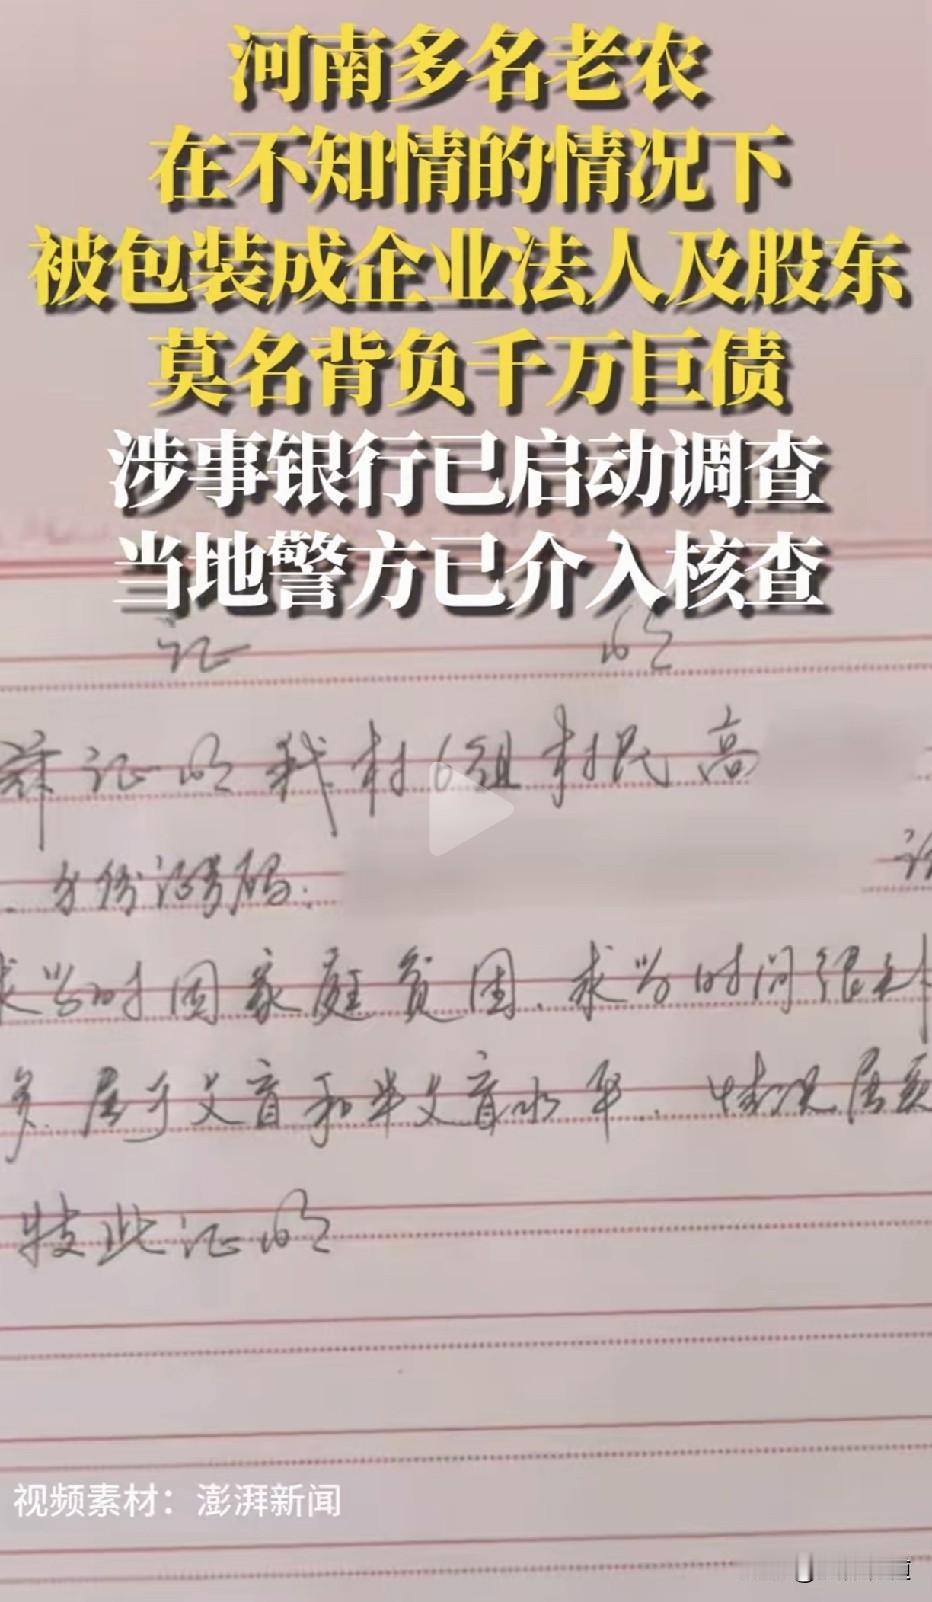 河南多名老农
在不知情的情况下
被包装成企业法人及股东
莫名背负千万巨债
涉事银行已启动调查
当地警方已介入核查
证 明
兹证明我村6组村民高
身份证号码:
求学时因家庭贫困、求学时间很
属于文盲和半文盲水平. 情况属
特此证明
视频素材：澎湃新闻